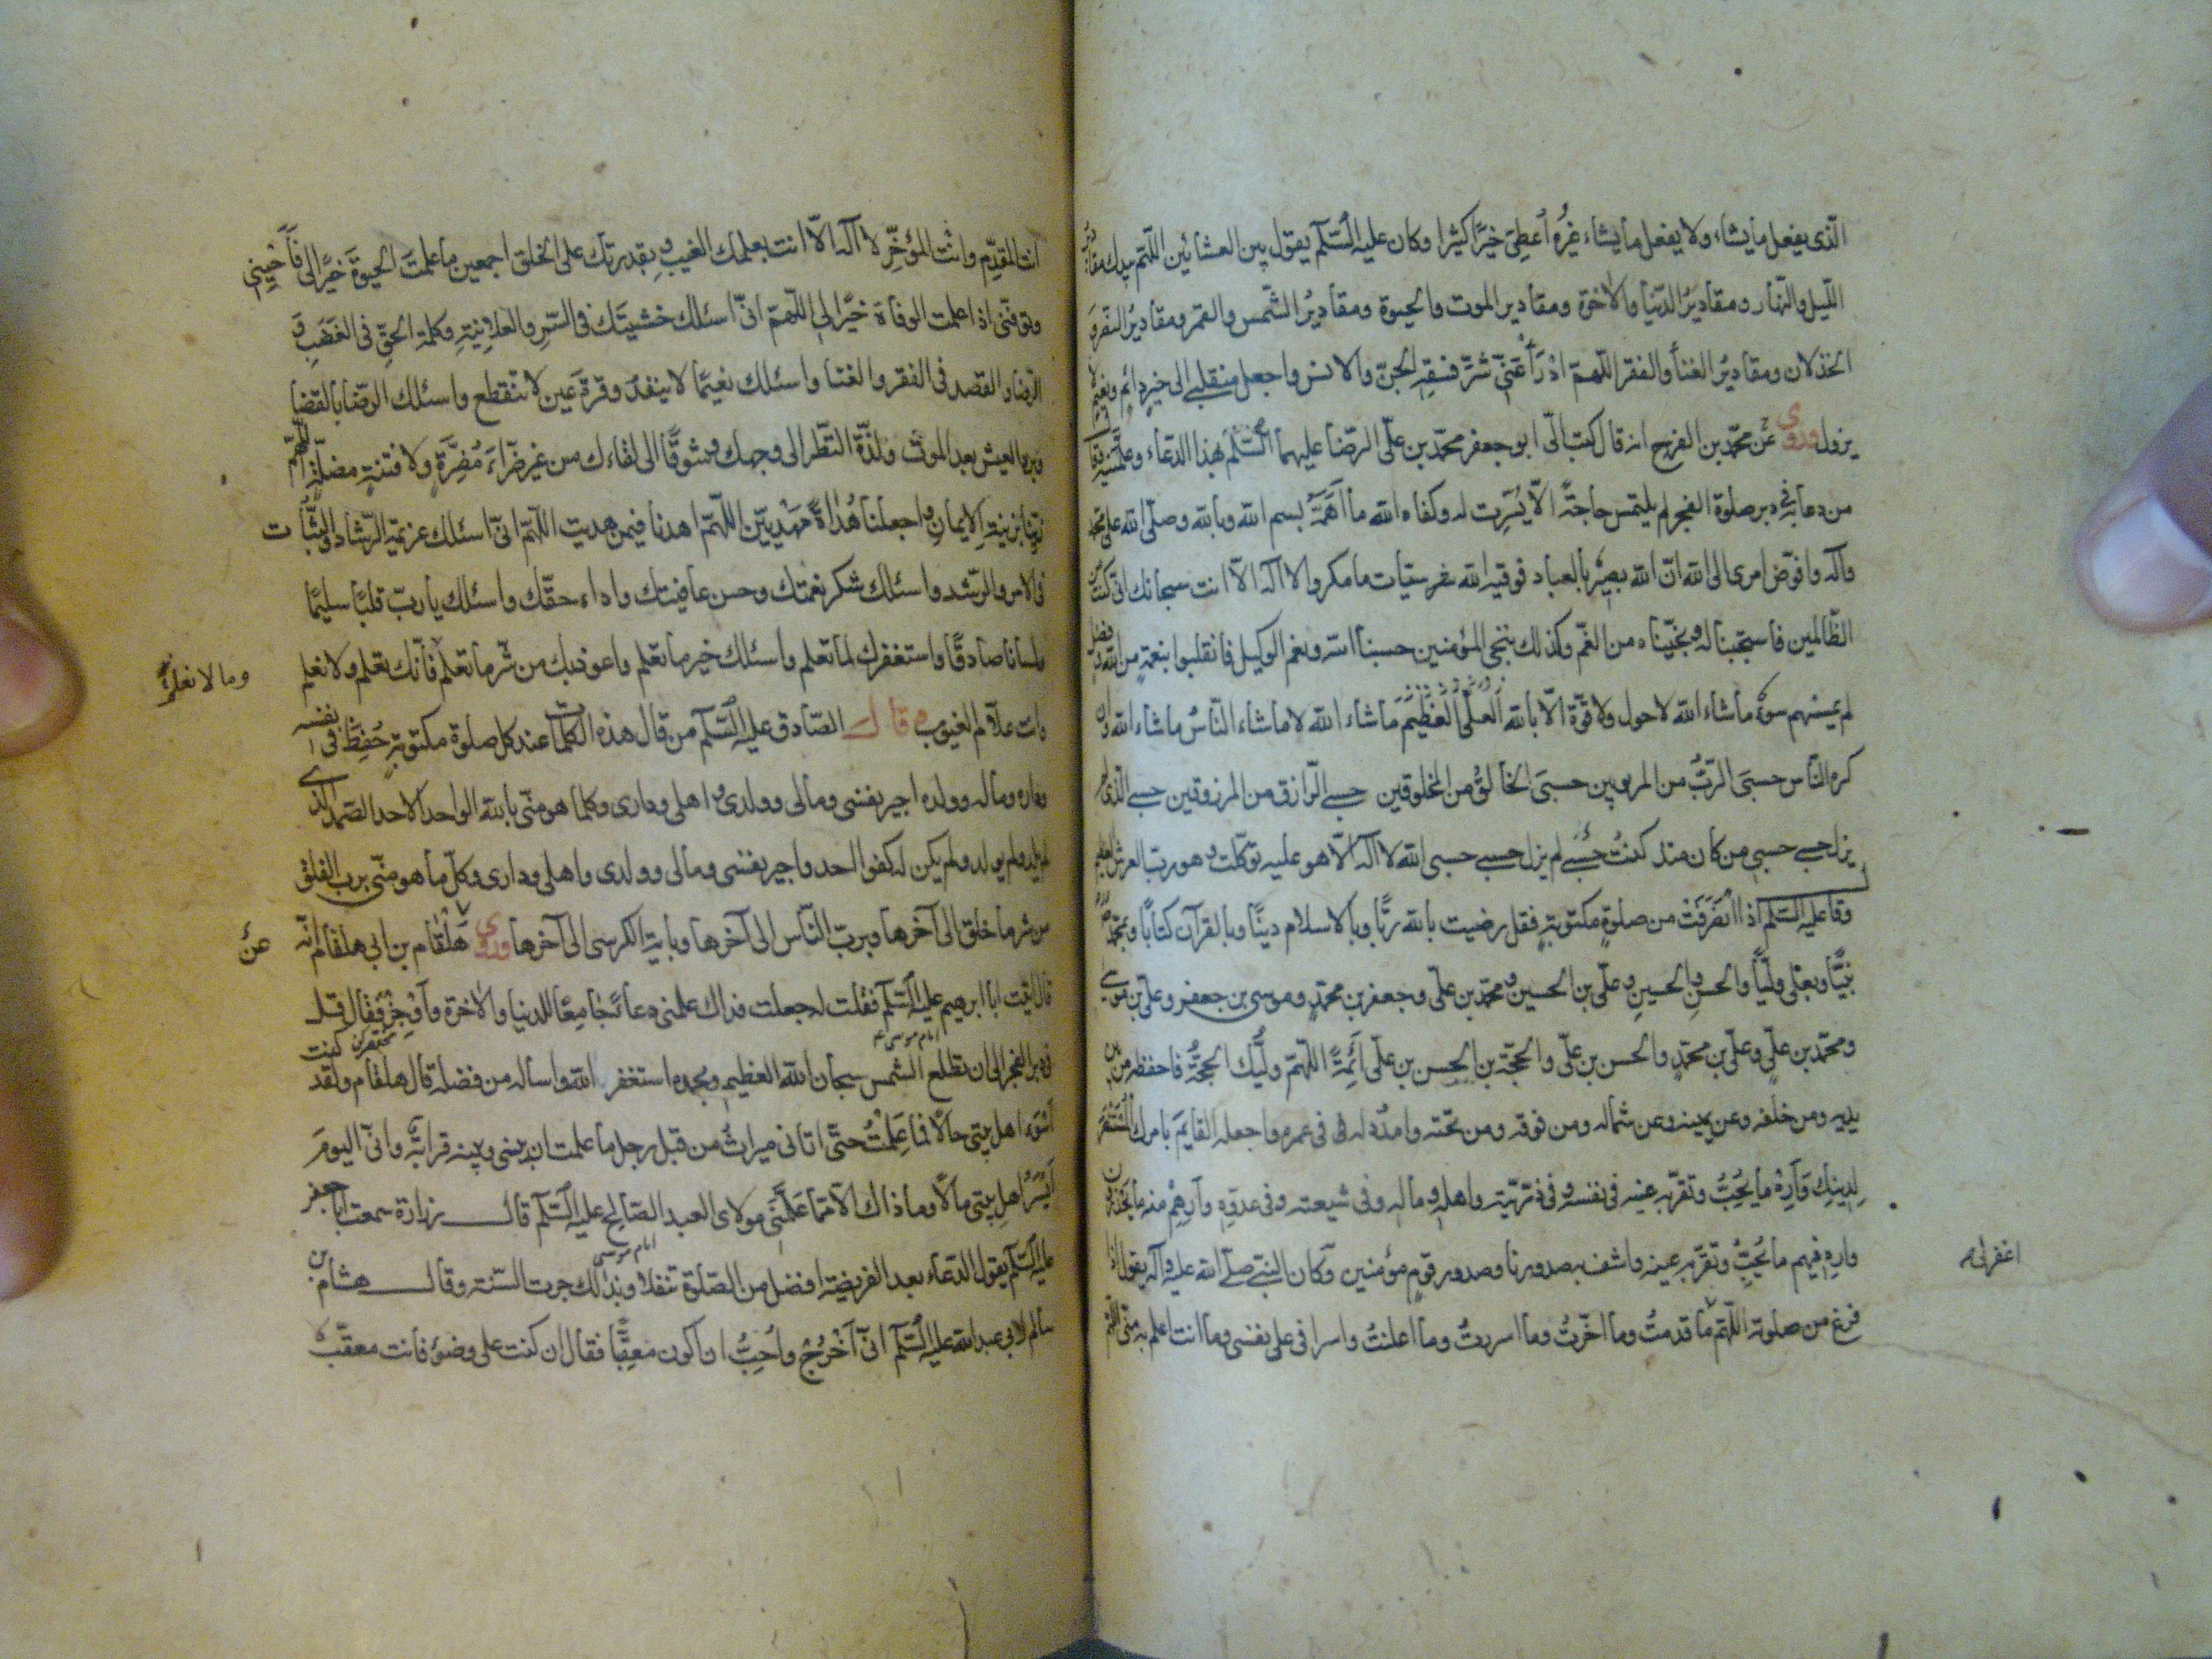 الّذى يفعل ما يشاء ولا يفعل ما يشاء غيرُه اُعطِىَ خيرًا كثيرا وكان عليه السّلم يقول بين العشائين اللّهمّ بيدك مقادير
اللّيل والنّهار ومقاديرُ الدّنيا والآخرة ومقادير الموت والحيوة ومقاديرُ الشّمس والقمر ومقاديرُ النصر و
الخذلان ومقاديرُ الغنا والفقر اللّهمّ ادْرَأ عنّى شرَّ فسقةِ الجنّ والانس واجعل منقلبى الى خيرٍ دائم ونعيم لا
يزول وروى عن محمّد بن الفرج انه قال كتب الىّ ابو جعفر محمّد بن علىّ الرّضا عليهما السّلم بهذا الدّعاء وعلّمنيه وقال
من دعا به فى دبر صلوة الفجر لم يلتمس حاجةً الّا يُسّرت له وكفاه الله ما اهَمّهُ بسم الله وبالله وصلّى الله على محمّد
وآله وافوّض امرى الى الله انّ الله بصيرٌ بالعباد فوقيه الله سيّئات ما مكروا لا اله الّا انت سبحانك انّى كنت من
الظّالمين فاستجبنا له ونجّيناه من الغمّ وكذلك ننجى المؤمنين حسبنا الله ونعم الوكيل فانقلبوا بنعمةٍ من الله وفضل
لم يمسسهم سوءٌ ما شاء الله لا حول ولا قوّة الّا بالله العلىّ العظيم ما شاء الله لا ما شاء النّاسُ ما شاء الله وان
كره النّاس حسبىَ الرّبُّ من المربوبين حسبىَ الخالقُ من المخلوقين حسبى الرّازق من المرزوقين حسبى الّذى لم
يزل حسبى حسبى من كان منذ كنتُ حسبى لم يزل حسبى حسبى الله لا اله الّا هو عليه توكّلت وهو ربّ العرش العظيم
وقا عليه السّلم اذا انْصَرَفْتَ من صلوةٍ مكتوبةٍ فقل رضيت بالله ربًّا وبالاسلام دينًا وبالقرآن كتابًا وبمحمّدٍ
نبيًّا وبعلىٍّ وليًّا والحسنِ والحسينِ وعلىّ بن الحسين ومحمّد بن علىّ وجعفر بن محمّدٍ وموسى بن جعفر وعلىّ بن موسى
ومحمّد بن علىٍّ وعلىّ بن محمّدٍ والحسن بن علىّ والحجّة بن الحسن بن علىّ ائمّةً اللّهمّ وليُّك الحجّةُ فاحفظه من بين
يديه ومن خلفه وعن يمينه وعن شماله ومن فوقه ومن تحته وامدُد له فى عمره واجعله القايمَ بامرك المُنتصِرَ
لِدينِك وَاَرِهْ ما يُحِبُّ وتقرّ به عينه فى نفسه وفى ذرّيّته واهله وماله وفى شيعته وفى عدوّه وَاَرِهِمْ منه ما يَحْذَرون
واره فيهم ما يُحبُّ وتقرّ به عينه واشف به صدورنا وصدور قومٍ مؤمنين وكان النّبىّ صلّى الله عليه وآله يقول اذا
فرغ من صلوته اللّهمّ ما قدّمتُ وما اخّرتُ وما اسررتُ وما اعلنتُ واسرافى على نفسى وما انت اعلم به منّى اللّهمّ
اغفر لى
انت المقدِّم وانت المؤخِّر لا اله الّا انت بعلمك الغيب وبقدرتك على الخلق اجمعين ما علمتَ الحيوةَ خيرًا لى فَاَحْيِنى
وتوفّنى اذا علمت الوفاة خيرًا لى اللّهمّ انّى اسئلك خشيتَك فى السّرِ والعلانِيَةِ وكلمة الحقّ فى الغضبِ و
الرّضا والقصد فى الفقر والغنا واسئلك نعيمًا لا ينفدُ وقرّةَ عينٍ لا تنقطع واسئلك الرّضا بالقضا
وبرد العيش بعد الموت ولذّة النّظر الى وجهك وشوقًا الى لقاءك من غير ضرّاءَ مُضرّةٍ ولا فتنةٍ مضلّةٍ اللّهمّ
زيّنّا بزينةِ الايمانِ واجعلنا هُداةً مَهْديّين اللّهمّ اهدنا فيمن هديت اللّهمّ انّى اسئلك عزيمةَ الرّشاد والثّبات
فى الامر والرّشد واسئلك شكر نعمتك وحسن عافيتك واداء حقّك واسئلك يا ربّ قلبًا سليمًا
ولسانًا صادقًا واستغفرك لما تعلم واسئلك خير ما تعلم واعوذ بك من شرّ ما تعلم فانّك تعلم ولا نعلم
وما لا نعلم
وانت علّام الغيوب وقال الصّادق عليه السّلم من قال هذه الكلمات عند كل صلوة مكتوبةٍ حُفِظَ فى نفسه
وداره وماله وولده اجير نفسى ومالى وولدى واهلى ودارى وكلما هو منّى بالله الواحد الاحد الصّمد الّذى
لم يلد ولم يولد ولم يكن له كفوا احد واجير نفسى ومالى وولدى واهلى ودارى وكلّ ما هو منّى بربّ الفلق
من شر ما خلق الى آخرها وبربّ النّاس الى آخرها وباية الكرسى الى آخرها وروى هلقام بن ابى هلقام انّه
عن
قال اتيت ابا ابرهيم عليه السّلم فقلت له جعلت فداك علمنى دعاءً جامعًا للدنيا والآخرة وَاَوْجِزْ فقال قل
امام موسى
فى دبر الفجر الى ان تطلع الشمس سبحان الله العظيم وبحمده استغفر الله واساله من فضله قال هلقام ولقد كنت
اسْوَءَ اهل بيتى حالًا فما عَلِمْتُ حتّى اتانى ميراثٌ من قبل رجل ما علمت ان بينى وبينه قرابةً وانّى اليومَ
اَيْسَرُ اهلِ بيتى مالًا وما ذاك الّا ممّا علّمَنى مولاى العبد الصّالح عليه السّلم قال زرارة سمعت ابا جعفر
امام موسى
عليه السّلم يقول الدّعاء بعد الفريضة افضل من الصّلوة تنفّلا وبذلك جرت السّنة وقال هشام بن
سالم لابى عبد الله عليه السّلم انّى اَخْرُجُ واُحِبُّ ان اكون معقِّبًا فقال ان كنت على وضوءٍ فانت معقّب